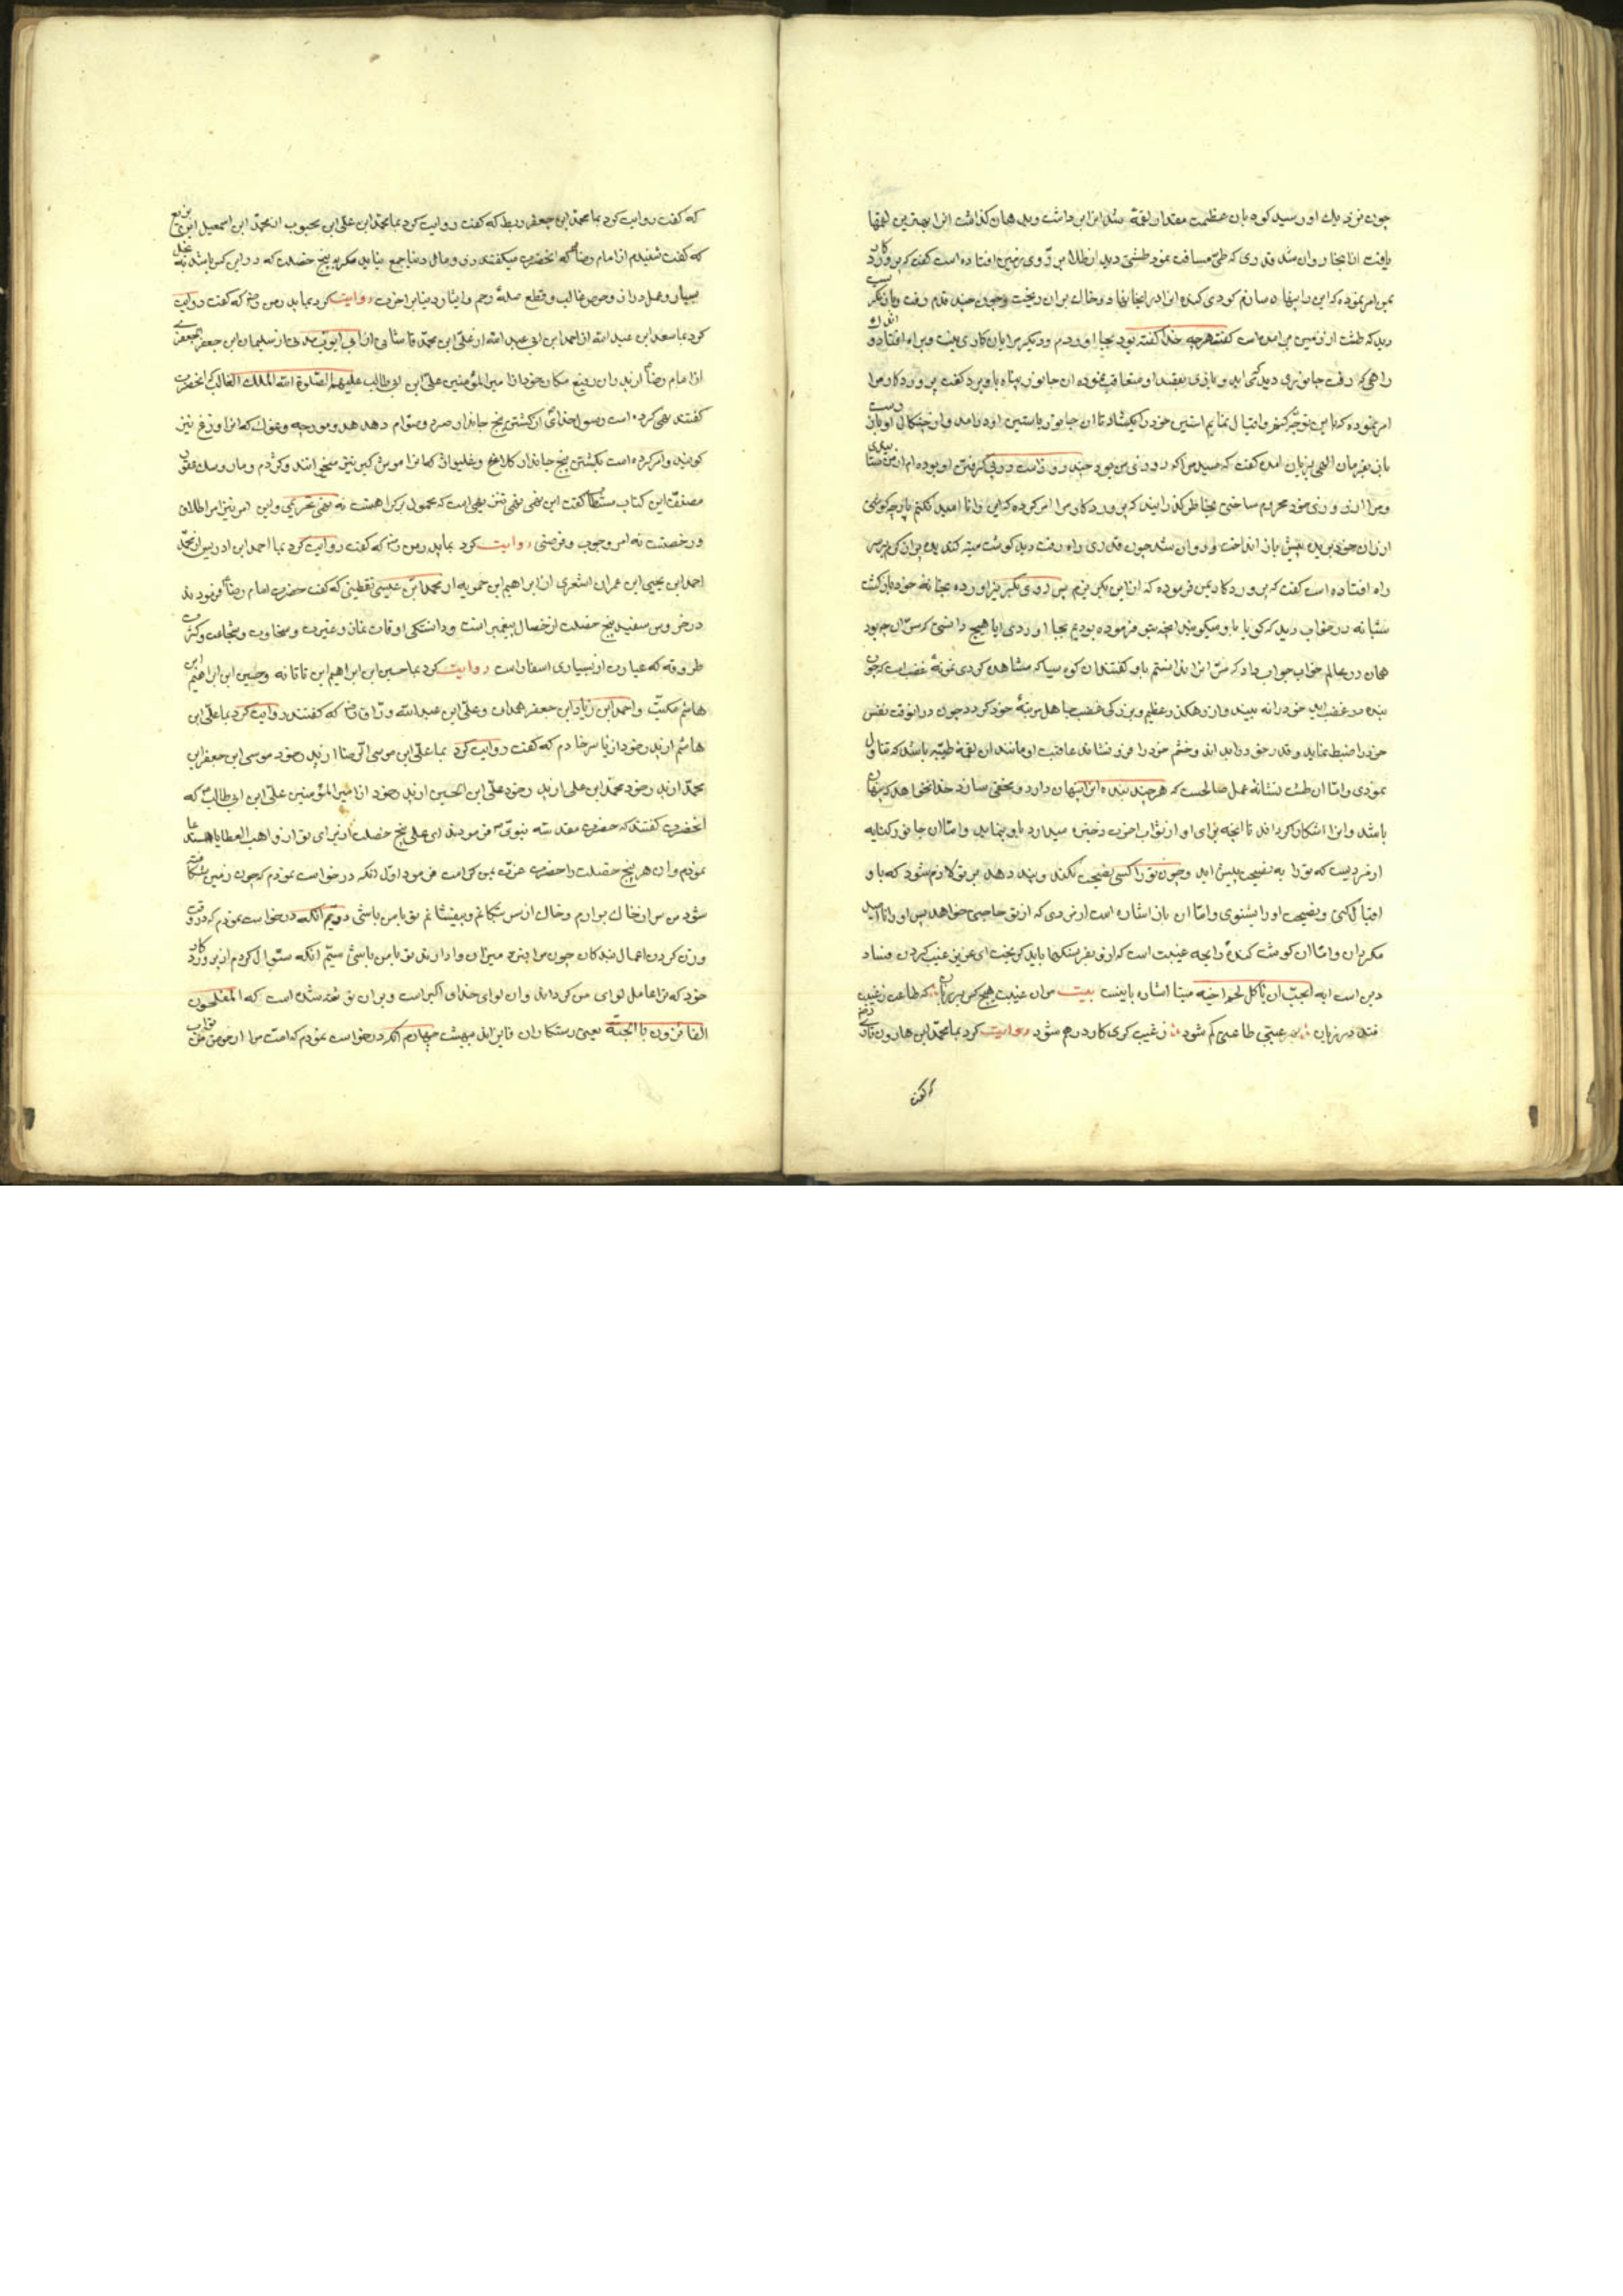 چون نزدیك او رسید کوه بان عظمت مقدار لقمهٔ شد انرا برداشت و بدهان گذاشت انرا بهترین لقمها
یافت از انجا روان شد قدری که طی مسافت نمود طشتی دید از طلا بر روی زمین افتاده است گفت که پروردکار
بمن امر نموده که این را پنهان سازم کودی کنده انرا در انجا نهاد و خاك بران ریخت و چون چند قدم رفت باز نکر
دید که طشت از زمین بر امده است گفت هرچه خدا گفته بود بجا اوردم و دیکر مرا بان کاری نیست و براه افتاد و
راهی که رفت جانوری دید که می اید و بازی بعقب او متعاقب نموده ان جانور پناه باو برد گفت پروردکار مرا
امر نموده که باین توجه کنم و اقبال نمایم استین خود را بکشاد تا ان جانور باستین او درامد و از چنکال او باز
باز بفرمان الهی بزبان امده گفت که صید مرا که روزی من بود چند روز است در پی کرفتن او بوده ام از من ستا
و مرا از روزی خود محروم ساختی بخاطر کذرانید که پروردکار مرا امر کرده که این را نا امید نکنم پارچه کوشتی
از ران خود بریده پیش باز انداخت و روان شد چون قدری راه رفت دید کوشت میته کندیده پر از کرم بر سر
راه افتاده است گفت که پروردکار بمن فرموده که از این بکریزم پس روی بکریز اورده بخانه خود باز کشت
شبانه در خواب دید که کویا باو میکویند انچه بتو فرموده بودیم بجا اوردی ایا هیچ دانستی که سر ان چه بود
همان در عالم خواب جواب داد که سر انرا ندانستم باو گفتند ان کوه سیاه که مشاهده کردی نمونهٔ غضب است که چون
بنده در غضب اید خود را نه بیند و از رهکذر عظیم و بزرکی غضب جاهل مرتبهٔ خود کردد چون در انوقت نفس
خود را ضبط نماید و قدر حق در یابد و خشم خود را فرو نشاند عاقبت او مانند ان لقمهٔ طیبه باشد که تناول
نمودی و اما ان طشت نشانهٔ عمل صالحست که هرچند بنده انرا پنهان دارد و مخفی سازد خدا نخواهد که پنهان
باشد و انرا اشکار کرداند تا انچه برای او از ثواب اخرت ذخیره میدارد باو بنماید و اما ان جانور کنایه
از مردیست که ترا به نصیحت پیش اید و چون ترا کسی نصیحت نکند و پند دهد بر تو لازم شود که باو
اقبال کنی و نصیحت او را بشنوی و اما ان باز اشاره است از مردی که از تو حاجتی خواهد پس او را نا امید
مکردان و اما ان کوشت کنده رایحه غیبت است که از و بفرسنکها باید کریخت ای عزیز غیبت کردن فساد
دین است ایه ایحب ان یاکل لحم اخیه میتا اشاره باینست بیت مران غیبت هیچکس بر زبان که طاعت ز غیبت
فتد در زیان ز غیبت کری کار درهم شود روایت کرد بما محمد ابن هارون
که گفت
که گفت روایت کرد بما محمد ابن جعفر بطه که گفت روایت کرد بما محمد ابن علی ابن محبوب از محمد ابن اسمعیل ابن بزیع
که گفت شنیدم از امام رضا که انحضرت میکفتند زر و مال دنیا جمع نیاید مکر بپنج خصلت که در این کس باشد بخل
بسیار و امل دراز و حرص غالب و قطع صلهٔ رحم و ایثار دنیا بر اخرت روایت کرد بما پدر من رض که گفت روایت
کرد بما سعد ابن عبد الله از احمد ابن ابی عبد الله از علی ابن محمد قاشانی از ابی ایوب مدنی از سلیمان ابن جعفر الجعفری
از امام رضا از پدران رفیع مکان خود از امیر المؤمنین علی ابن ابی طالب علیهم الصلوة الله الملك الغالب که انحضرت
گفتند نهی کرده است رسول خدای از کشتن پنج جاندار صرد و صوام و هدهد و مورچه و غوك که انرا وزغ نیز
کویند و امر کرده است بکشتن پنج جاندار کلاغ و غلیواژ که انرا موش کیر نیز میخوانند و کژدم و مار و سك عقور
مصنف این کتاب گفت این نهی نهی است که محمول بر کراهت است نه نهی تحریمی و این امر نیز امر اطلاق
و رخصت نه امر وجوب و فرضی روایت کرد بما پدر من رض که گفت روایت کرد بما احمد ابن ادریس از محمد
احمد ابن یحیی ابن عمران اشعری از ابراهیم ابن حمویه از محمد ابن عیسی یقطینی که گفت حضرت امام رضا فرمودند
در خروس سفید پنج خصلت از خصال پیغمبر است و دانستکی اوقات نماز و غیرت و سخاوت و شجاعت و کثرت
طروقه که عبارت از بسیاری اسفار است روایت کرد بما حسین ابن ابراهیم ابن ناتانه و حسین ابن ابراهیم ابن
هاشم مکتب و احمد ابن زیاد ابن جعفر همدان و علی ابن عبد الله وراق رض که گفتند روایت کرد بما علی ابن
هاشم از پدر خود از یاسر خادم که گفت روایت کرد بما علی ابن موسی الرضا از پدر خود موسی ابن جعفر ابن
محمد از پدر خود محمد ابن علی از پدر خود علی ابن الحسین از پدر خود از امیر المؤمنین علی ابن ابی طالب که
انحضرت گفتند که حضرت مقدسه نبوی فرمودند ای علی پنج خصلت از برای تو از واهب العطایا استدعا
نمودم و ان هر پنج خصلت را حضرت عزت بمن کرامت فرمود اول انکه درخواست نمودم که چون زمین شکافته
شود من سر از خاك بر ارم و خاك از سر بتکانم و بیفشانم تو با من باشی دویم انکه درخواست نمودم که در وقت
وزن کردن اعمال بندکان چون مرا بنزد میزان وا دارند تو با من باشی سیم انکه سئوال کردم از پروردکار
خود که ترا حامل لوای من کرداند و ان لوای خدای اکبر است و بران نوشته شده است که المفلحون
الفائزون بالجنة یعنی رستکاران فایز اند ببهشت چهارم انکه درخواست نمودم که امت مرا از حوض من تو اب